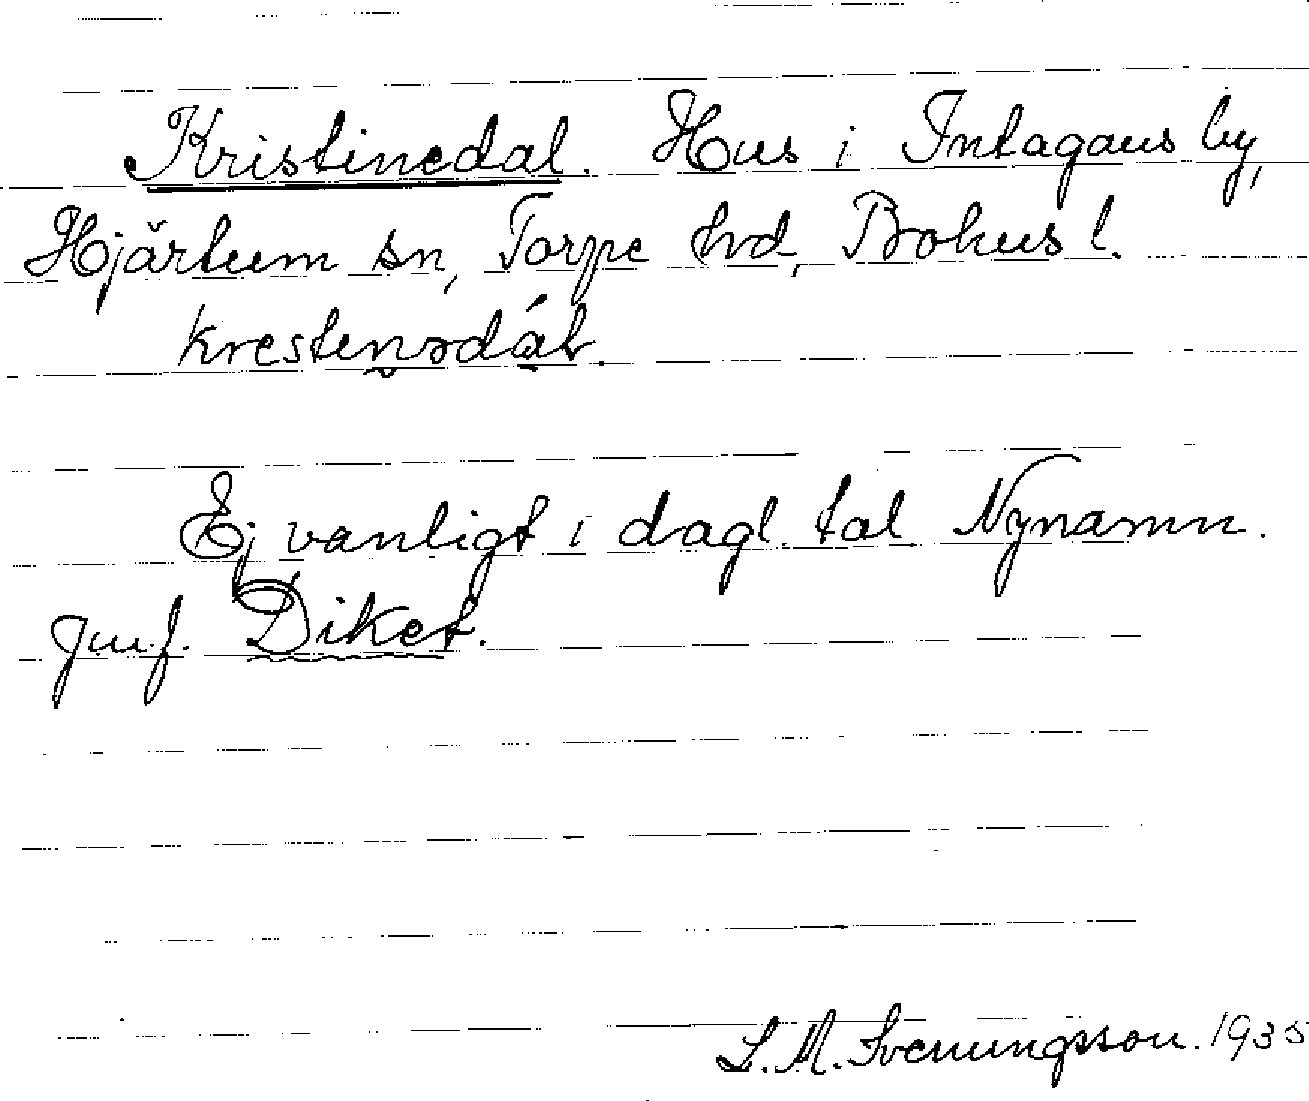 Kristinedal. Hus i Intagans by,
Hjärtum sn, Torpe hd, Bohus l.
krestenədáɫ.
Ej vanligt i dagl. tal Nynamn.
Jmf. Diket.
S. M. Svenungsson. 1935